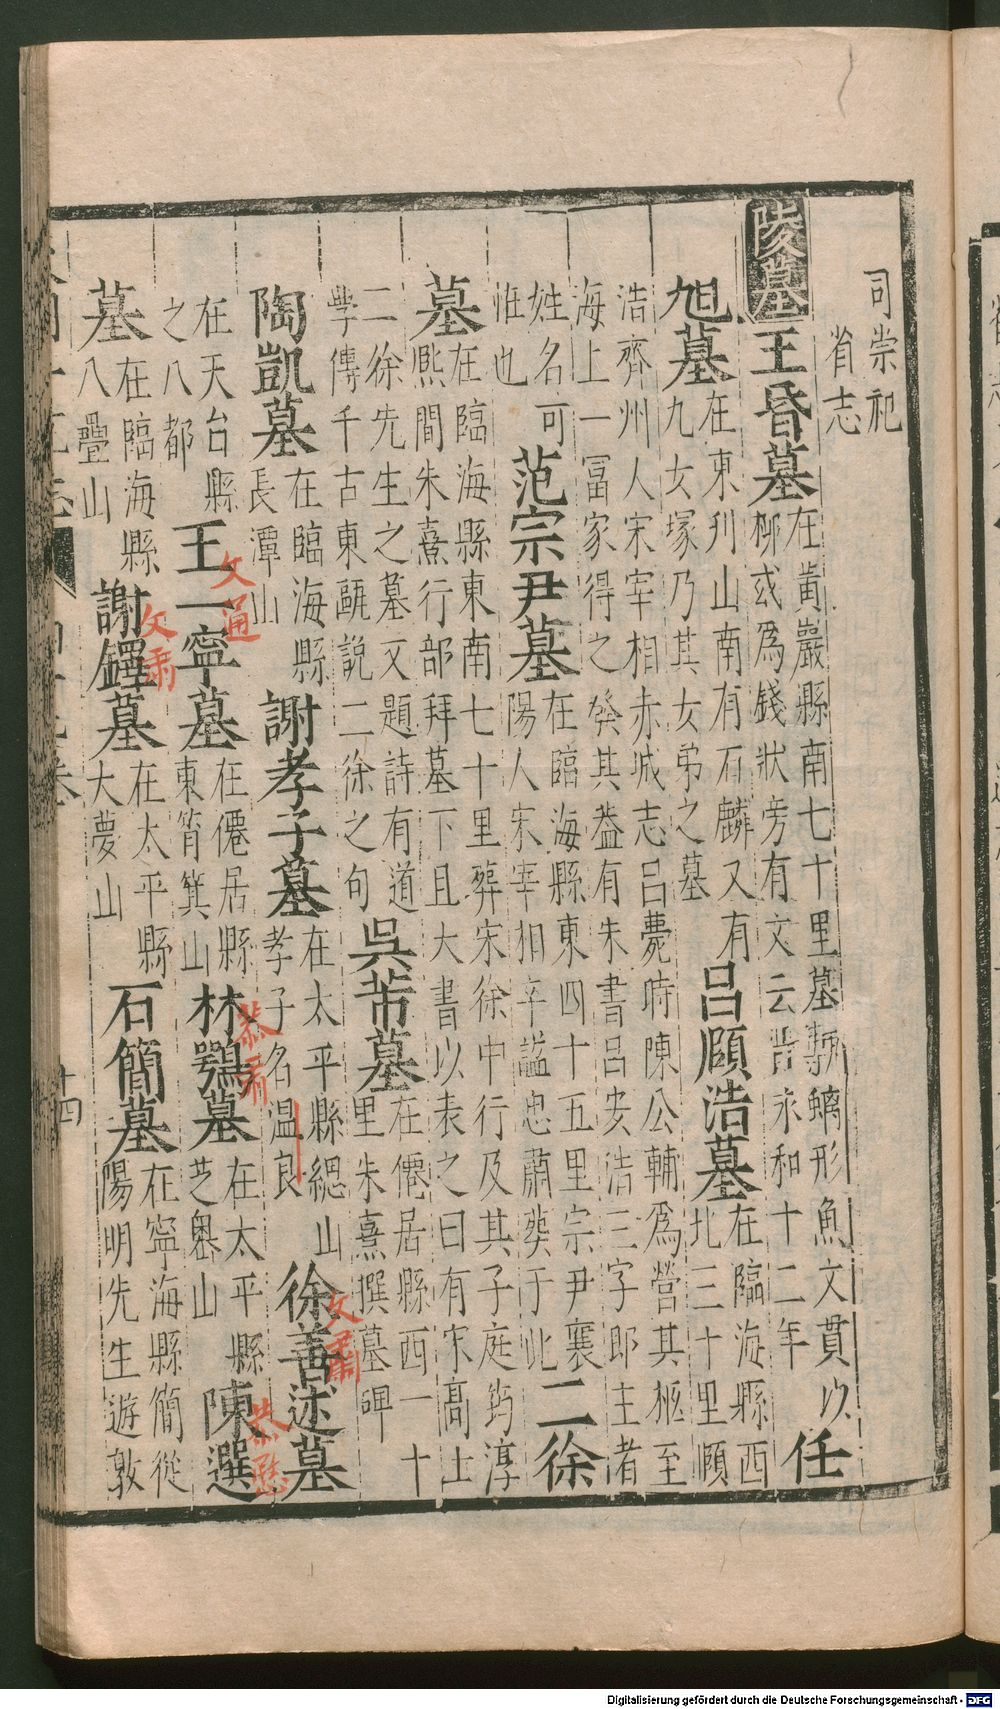 司崇祀
省志
陵墓 王昏墓 在黃巖縣南七十里墓甎鱗形魚文貫以
柳或為錢狀旁有文云晉永和十二年 任
旭墓 在東刋山南有石麟又有
九女塚乃其女弟之墓 呂頤浩墓 在臨海縣西
北三十里頤
浩齊州人宋宰相赤城志呂薨時陳公輔為營其柩至
海上一冨家得之發其葢有朱書呂安浩三字郎主者
姓名可
惟也 范宗尹墓 在臨海縣東四十五里宗尹襄
陽人宋宰相卒謚忠肅葬于此 二徐
墓 在臨海縣東南七十里葬宋徐中行及其子庭筠淳
熈間朱熹行部拜墓下且大書以表之曰有宋高士
二徐先生之墓又題詩有道
學傳千古東甌說二徐之句 吳芾墓 在僊居縣西一十
里朱熹撰墓碑
陶凱墓 在臨海縣
長潭山 謝孝子墓 在太平縣緦山
孝子名温良 徐善述墓
文肅
在天台縣
之八都 王一寧墓 在僊居縣
東筲箕山 林鶚墓 在太平縣
芝嶴山 陳選
文通
恭肅
恭愍
墓 在臨海縣
八疊山 謝鐸墓 在太平縣
大夢山 石簡墓 在寧海縣簡從
陽明先生遊敦
文肅
十四
Digitalisierung gefördert durch die Deutsche Forschungsgemeinschaft - DFG